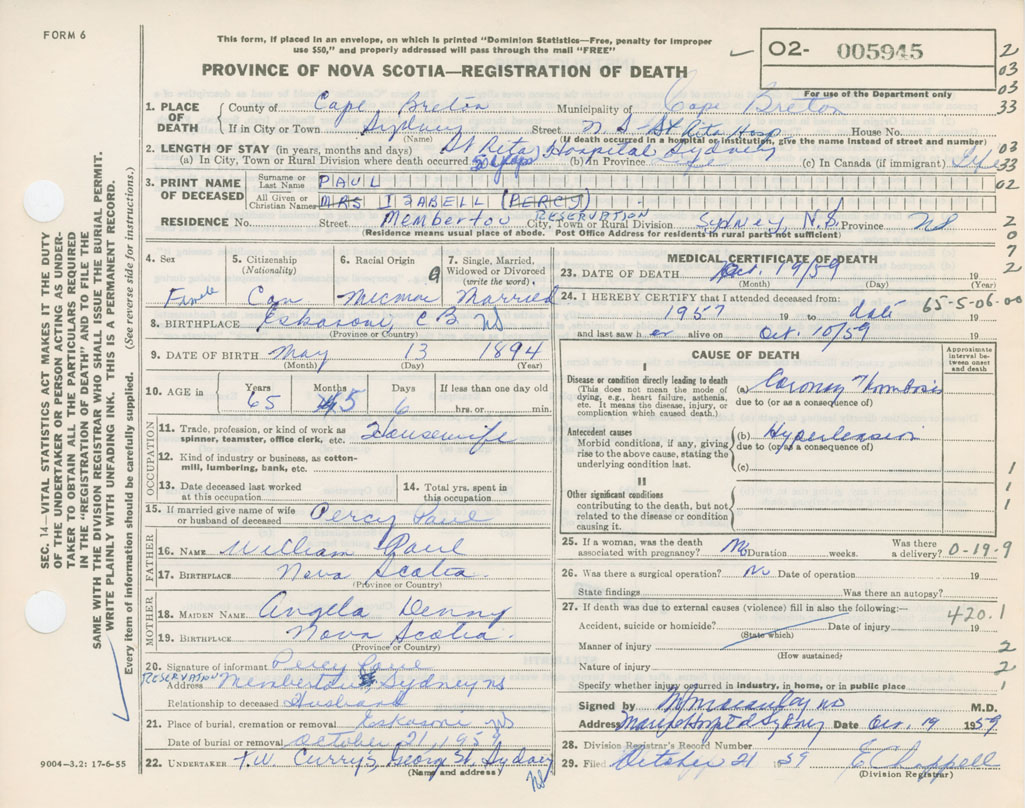 FORM 6
This form, if placed in an envelope, on which is printed "Dominion Statistics—Free, penalty for improper
use $50," and properly addressed will pass through the mail "FREE"
02- 005945
For use of the Department only
PROVINCE OF NOVA SCOTIA—REGISTRATION OF DEATH
2
03
03
33
03
33
02
2
0
7
2
SEC. 14—VITAL STATISTICS ACT MAKES IT THE DUTY
OF THE UNDERTAKER OR PERSON ACTING AS UNDER-
TAKER TO OBTAIN ALL THE PARTICULARS REQUIRED
IN THE "REGISTRATION OF DEATH" AND FILE THE
SAME WITH THE DIVISION REGISTRAR WHO SHALL ISSUE THE BURIAL PERMIT.
WRITE PLAINLY WITH UNFADING INK. THIS IS A PERMANENT RECORD.
Every item of information should be carefully supplied. (See reverse side for instructions.)
1. PLACE OF DEATH County of Cape Breton Municipality of Cape Breton
If in City or Town Sydney Street St Rita Hosp House No.
(Name) (If death occurred in a hospital or institution, give the name instead of street and number)
2. LENGTH OF STAY (in years, months and days) St Rita Hospital Sydney
(a) In City, Town or Rural Division where death occurred (b) In Province life (c) In Canada (if immigrant) Life
3. PRINT NAME OF DECEASED Surname or Last Name PAUL
All Given or Christian Names MRS IZABELL (PERCY)
RESIDENCE No. Street Membertou RESERVATION City, Town or Rural Division Sydney, N.S. Province NS
(Residence means usual place of abode. Post Office Address for residents in rural parts not sufficient)
4. Sex Female
5. Citizenship (Nationality) Can
6. Racial Origin 9 Micmac
7. Single, Married, Widowed or Divorced (write the word) Married
8. BIRTHPLACE Eskasoni, C B. NS
(Province or Country)
9. DATE OF BIRTH May 13 1894
(Month) (Day) (Year)
10. AGE in Years 65 Months 5 Days 6 If less than one day old
hrs. or min.
OCCUPATION
11. Trade, profession, or kind of work as spinner, teamster, office clerk, etc. Housewife
12. Kind of industry or business, as cotton-mill, lumbering, bank, etc.
13. Date deceased last worked at this occupation
14. Total yrs. spent in this occupation
15. If married give name of wife or husband of deceased Percy Paul
FATHER
16. NAME William Paul
17. BIRTHPLACE Nova Scotia.
(Province or Country)
MOTHER
18. MAIDEN NAME Angela Denny
19. BIRTHPLACE Nova Scotia.
(Province or Country)
20. Signature of informant Percy Paul
RESERVATION
Address Membertou Sydney NS
Relationship to deceased Husband
21. Place of burial, cremation or removal Eskasoni NS
Date of burial or removal October 21, 1959
22. UNDERTAKER T.W. Curry's, George St, Sydney
(Name and address) NS
9004-3.2: 17-6-55
MEDICAL CERTIFICATE OF DEATH
23. DATE OF DEATH Oct. 19/59 19
(Month) (Day) (Year)
24. I HEREBY CERTIFY that I attended deceased from: 65-5-06-00
1957 19 to date 19
and last saw her alive on Oct. 10/59 19
CAUSE OF DEATH
Approximate interval between onset and death
I
Disease or condition directly leading to death
(This does not mean the mode of dying, e.g., heart failure, asthenia, etc. It means the disease, injury, or complication which caused death.)
(a) Coronary Thrombosis
due to (or as a consequence of)
Antecedent causes
Morbid conditions, if any, giving rise to the above cause, stating the underlying condition last.
(b) Hypertension
due to (or as a consequence of)
(c)
II
Other significant conditions
contributing to the death, but not related to the disease or condition causing it.
1
1
1
25. If a woman, was the death associated with pregnancy? No Duration weeks. Was there a delivery? 0-19-9
26. Was there a surgical operation? No Date of operation 19
State findings Was there an autopsy?
27. If death was due to external causes (violence) fill in also the following:— 420.1
Accident, suicide or homicide? Date of injury 19
(State which)
Manner of injury 2
(How sustained)
Nature of injury 2
Specify whether injury occurred in industry, in home, or in public place 1
Signed by M.D.
Address Sydney Date Oct. 19 1959
28. Division Registrar's Record Number
29. Filed October 21 59 E Chappell
(Division Registrar)